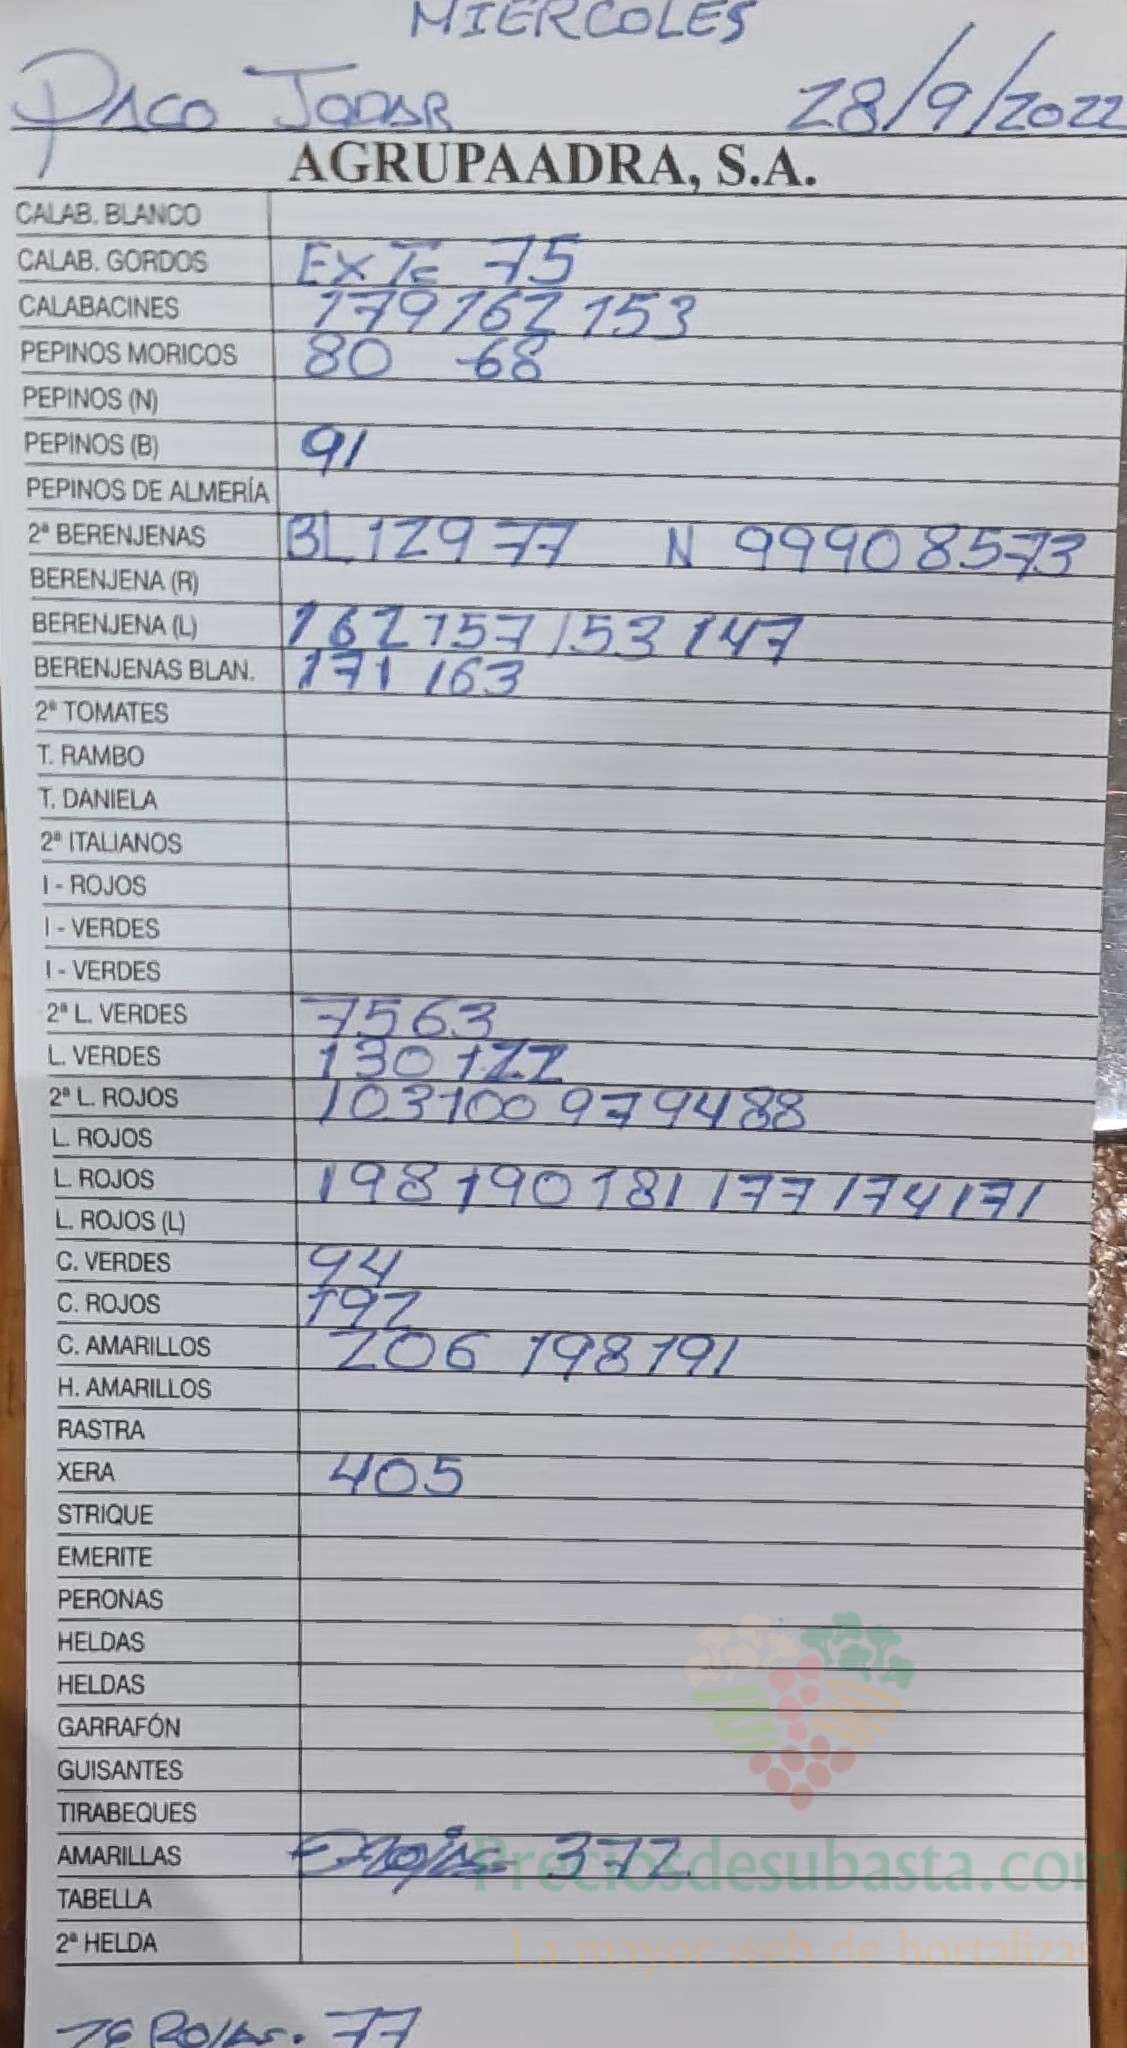 MIERCOLES
PACO JODAR 28/9/2022
AGRUPAADRA, S.A.
CALAB. BLANCO
CALAB. GORDOS 75
CALABACINES 179 162 153
PEPINOS MORICOS 80 68
PEPINOS (N)
PEPINOS (B) 91
PEPINOS DE ALMERÍA
2ª BERENJENAS BL 129 77 N 99 90 85 73
BERENJENA (R)
BERENJENA (L) 162 157 153 147
BERENJENAS BLAN. 171 163
2ª TOMATES
T. RAMBO
T. DANIELA
2ª ITALIANOS
I - ROJOS
I - VERDES
I - VERDES
2ª L. VERDES 75 63
L. VERDES 130 122
2ª L. ROJOS 103 100 97 94 88
L. ROJOS
L. ROJOS 198 190 181 177 174 171
L. ROJOS (L)
C. VERDES 94
C. ROJOS 192
C. AMARILLOS 206 198 191
H. AMARILLOS
RASTRA
XERA 405
STRIQUE
EMERITE
PERONAS
HELDAS
HELDAS
GARRAFÓN
GUISANTES
TIRABEQUES
AMARILLAS 372
Preciosdesubasta.com
TABELLA
2ª HELDA
La mayor web de hortalizas
77